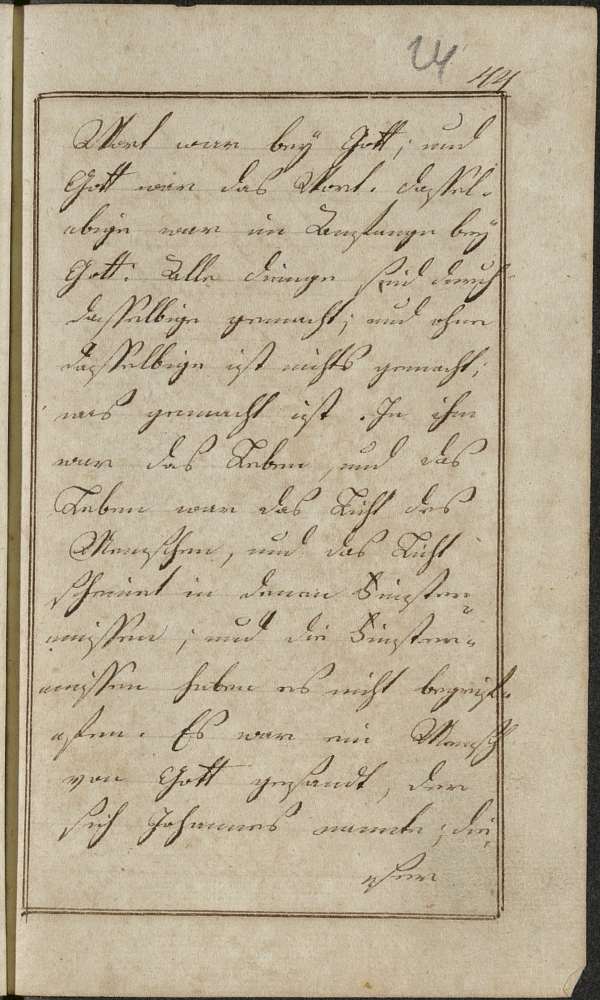 24
44
Wort war bey Gott; und
Gott war das Wort. dassel-
abige war im Anfange bey
Gott. Alle dinge sind durch
dasselbige gemacht; und ohne
dasselbige ist nichts gemacht;
was gemacht ist. In ihm
war das Leben, und das
Leben war das Licht des
Menschen, und das Licht
scheinet in denen Finster-
nissen; und die Finster-
nissen haben es nicht begrif-
fen. Es war ein Mensch
von Gott gesandt, der
sich Johannes nannte; die-
ser